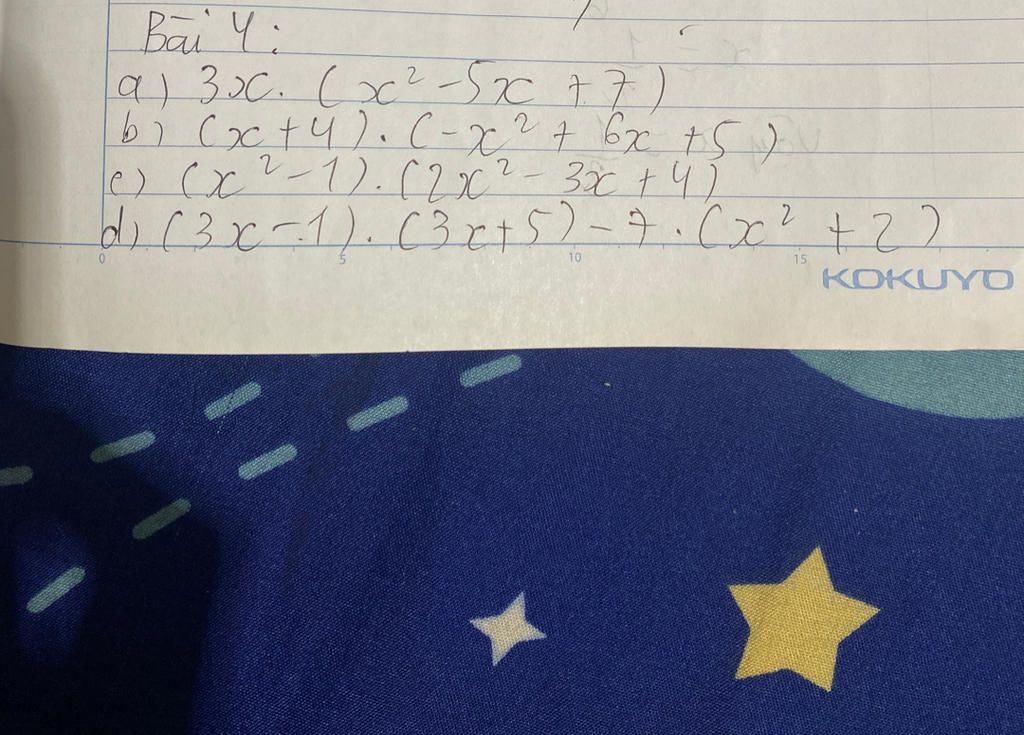 Bài 4:
a) 3x. (x² - 5x + 7)
b) (x+4). (-x² + 6x + 5)
c) (x² - 1). (2x² - 3x + 4)
d) (3x - 1). (3x+5) - 7. (x² + 2)
0 5 10 15
KOKUYO